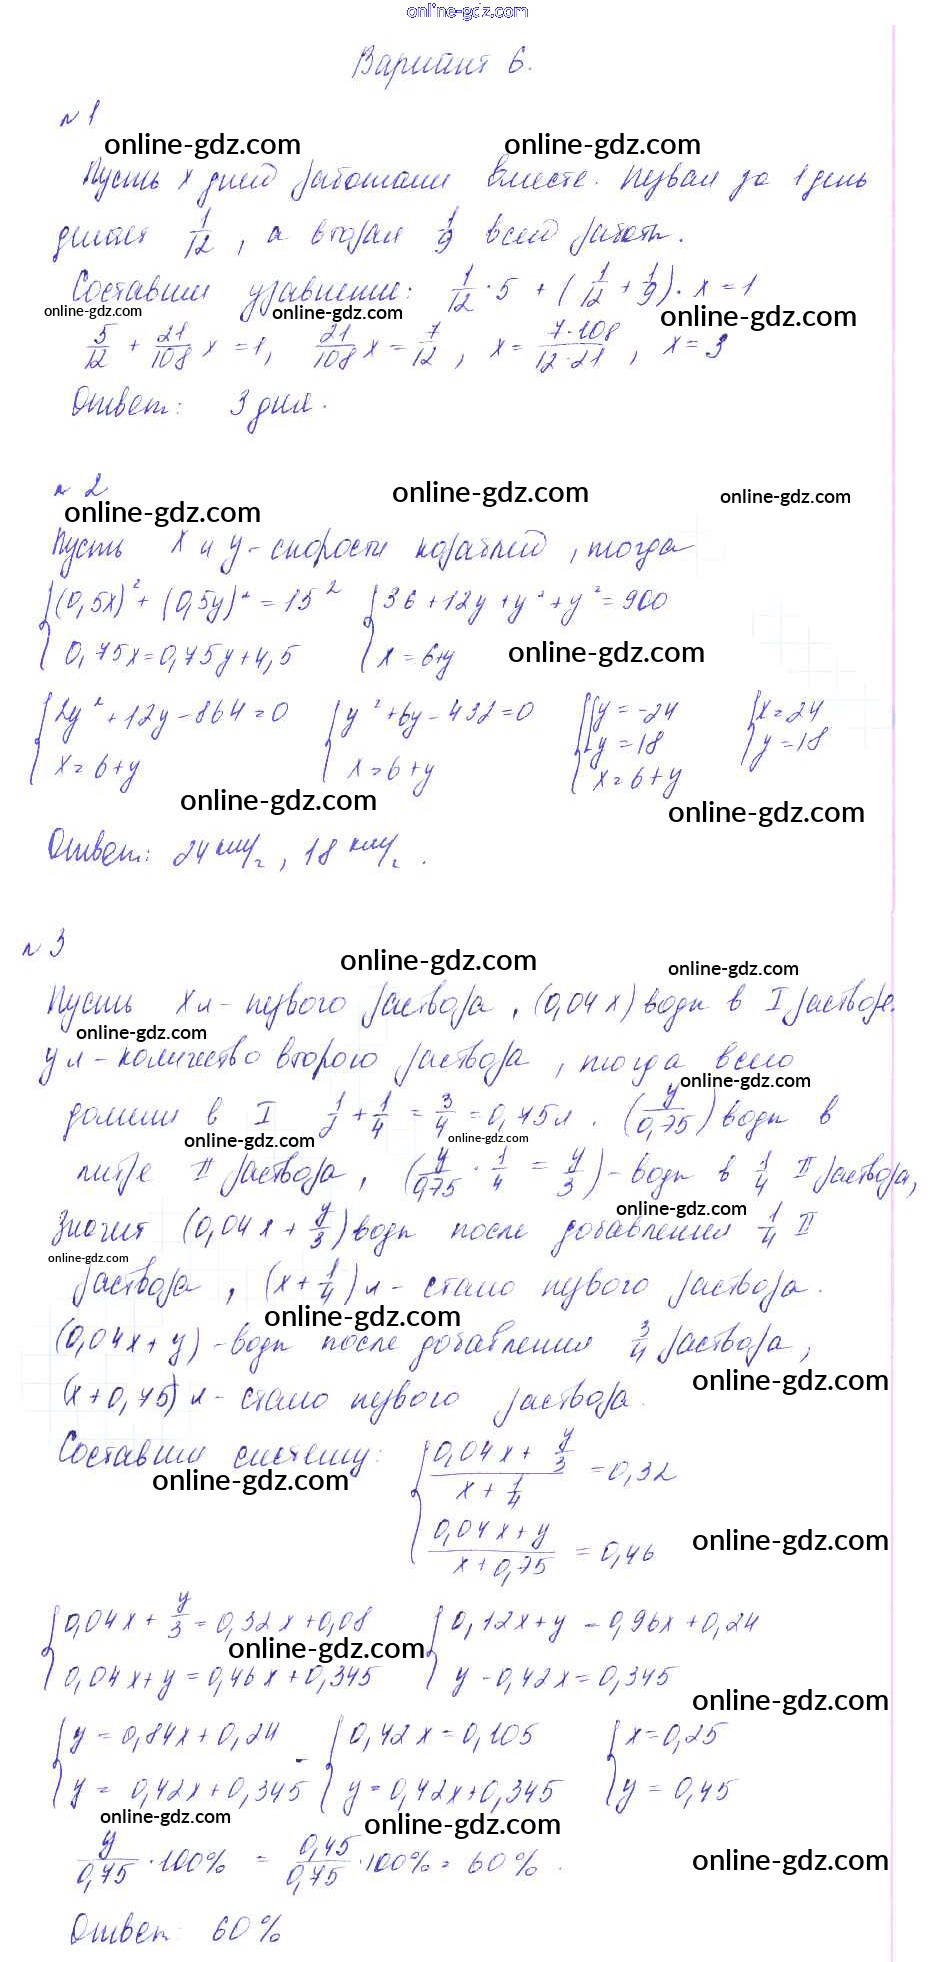 online-gdz.com
Вариант 6.
№ 1
online-gdz.com online-gdz.com
Пусть x дней работали вместе. Первая за 1 день
делает 1/12, а вторая 1/9 всей работы.
Составим уравнение: 1/12 · 5 + (1/12 + 1/9) · x = 1
online-gdz.com online-gdz.com online-gdz.com
5/12 + 21/108 x = 1, 21/108 x = 7/12, x = 7·108/12·21, x = 3
Ответ: 3 дня.
№ 2
online-gdz.com online-gdz.com
online-gdz.com
Пусть x и y - скорости кораблей, тогда
{(0,5x)² + (0,5y)² = 15² {36 + 12y + y² + y² = 900
0,75x = 0,75y + 4,5 x = 6+y online-gdz.com
{2y² + 12y - 864 = 0 {y² + 6y - 432 = 0 {[y = -24 {x = 24
y = 18 y = 18
x = 6 + y x = 6 + y x = 6 + y
online-gdz.com online-gdz.com
Ответ: 24 км/ч, 18 км/ч.
№ 3
online-gdz.com online-gdz.com
Пусть x л - первого раствора, (0,04x) воды в I растворе.
online-gdz.com
y л - количество второго раствора, тогда всего
online-gdz.com
долили в I 1/2 + 1/4 = 3/4 = 0,75 л. (y/0,75) воды в
online-gdz.com online-gdz.com
литре II раствора, (y/0,75 · 1/4 = y/3) - воды в 1/4 II раствора,
online-gdz.com
Значит (0,04x + y/3) воды после добавления 1/4 II
online-gdz.com
раствора, (x + 1/4) л - стало первого раствора.
online-gdz.com
(0,04x + y) - воды после добавления 3/4 раствора,
online-gdz.com
(x + 0,75) л - стало первого раствора.
Составим систему: {0,04x + y/3 / x + 1/4 = 0,32
online-gdz.com
0,04x + y / x + 0,75 = 0,46
online-gdz.com
{0,04x + y/3 = 0,32x + 0,08 {0,12x + y = 0,96x + 0,24
online-gdz.com
0,04x + y = 0,46x + 0,345 y - 0,42x = 0,345
online-gdz.com
{y = 0,84x + 0,24 - {0,42x = 0,105 {x = 0,25
y = 0,42x + 0,345 y = 0,42x + 0,345 y = 0,45
online-gdz.com online-gdz.com
y/0,75 · 100% = 0,45/0,75 · 100% = 60%.
online-gdz.com
Ответ: 60%